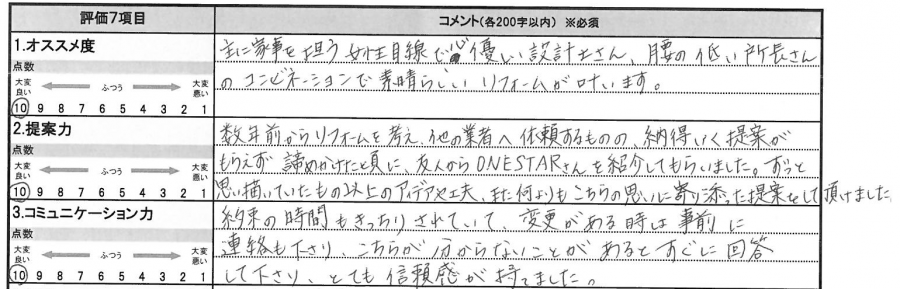 評価7項目
コメント(各200字以内) ※必須
1.オススメ度
点数
大変良い ふつう 大変悪い
10 9 8 7 6 5 4 3 2 1
主に家事を担う女性目線で心優しい設計士さん、腰の低い所長さん
のコンビネーションで素晴らしいリフォームが叶います。
2.提案力
点数
大変良い ふつう 大変悪い
10 9 8 7 6 5 4 3 2 1
数年前からリフォームを考え、他の業者へ依頼するものの、納得いく提案が
もらえず諦めかけたた頃に、友人からONESTARさんを紹介してもらいました。ずっと
思い描いていたもの以上のアイデアや工夫、また何よりもこちらの思いに寄り添った提案をして頂けました
3.コミュニケーション力
点数
大変良い ふつう 大変悪い
10 9 8 7 6 5 4 3 2 1
約束の時間もきっちりされていて、変更がある時は事前に
連絡も下さり、こちらが分からないことがあるとすぐに回答
して下さり、とても信頼感が持てました。